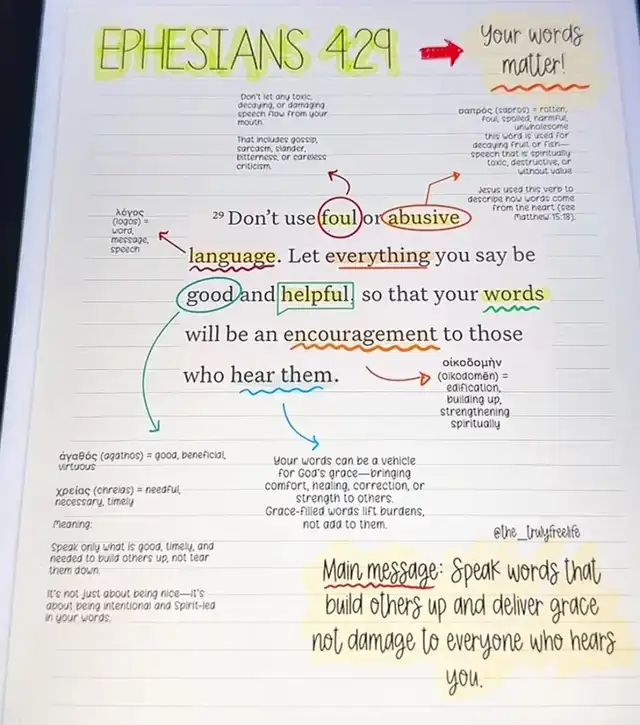 EPHESIANS 4:29
Your words
matter!
Don't let any toxic,
decaying, or damaging
speech flow from your
mouth.
That includes gossip,
sarcasm, slander,
bitterness, or careless
criticism.
σαπρός (sapros) = rotten,
foul, spoiled, harmful,
unwholesome
this word is used for
decaying fruit or fish—
speech that is spiritually
toxic, destructive, or
without value
Jesus used this verb to
describe how words come
from the heart (see
Matthew 15:18).
λόγος
(logos) =
word,
message,
speech
29 Don't use foul or abusive
language. Let everything you say be
good and helpful, so that your words
will be an encouragement to those
who hear them.
οἰκοδομὴν
(oikodomēn) =
edification,
building up,
strengthening
spiritually
ἀγαθός (agathos) = good, beneficial,
virtuous
χρείας (chreias) = needful,
necessary, timely
Meaning:
Speak only what is good, timely, and
needed to build others up, not tear
them down.
It's not just about being nice—it's
about being intentional and Spirit-led
in your words.
Your words can be a vehicle
for God's grace—bringing
comfort, healing, correction, or
strength to others.
Grace-filled words lift burdens,
not add to them.
@the_trulyfreelife
Main message: Speak words that
build others up and deliver grace
not damage to everyone who hears
you.